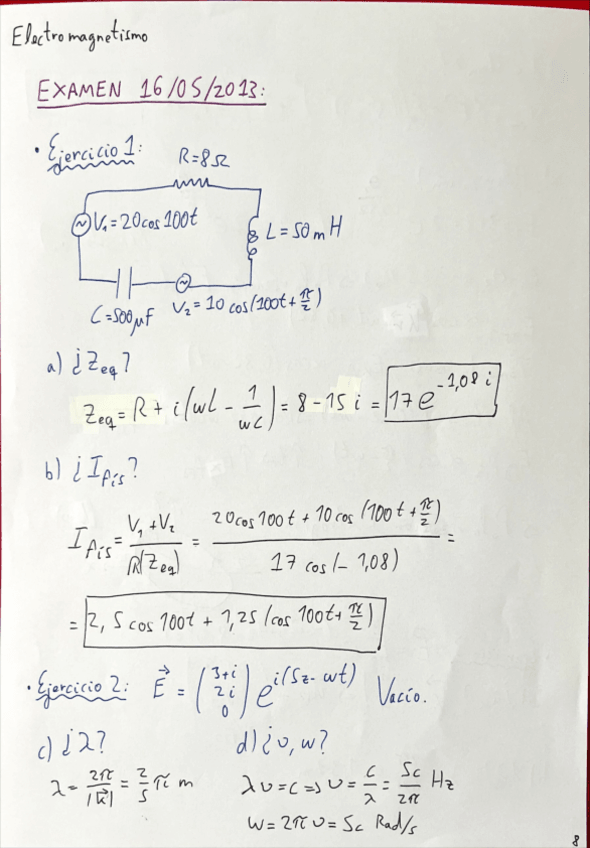 Electromagnetismo
EXAMEN 16/05/2013:
· Ejercicio 1:
R=8Ω
V₁=20cos100t
L=50mH
C=500μF
V₂=10 cos(100t+π/2)
a) ¿Zeq?
Zeq = R + i(wL - 1/wC) = 8-15i = 17e^-1,08i
b) ¿Ifís?
Ifís = (V₁+V₂)/R(Zeq) = (20cos100t + 10cos(100t+π/2))/(17 cos(-1,08)) =
= 2,5cos100t + 1,25(cos100t+π/2)
· Ejercicio 2: E⃗ = (3+i 2i 0) e^i(5z-wt) Vacío.
c) ¿λ? d) ¿υ, w?
λ = 2π/|k⃗| = 2/5 π m λυ=c => υ = c/λ = 5c/2π Hz
w=2πυ=5c Rad/s
8